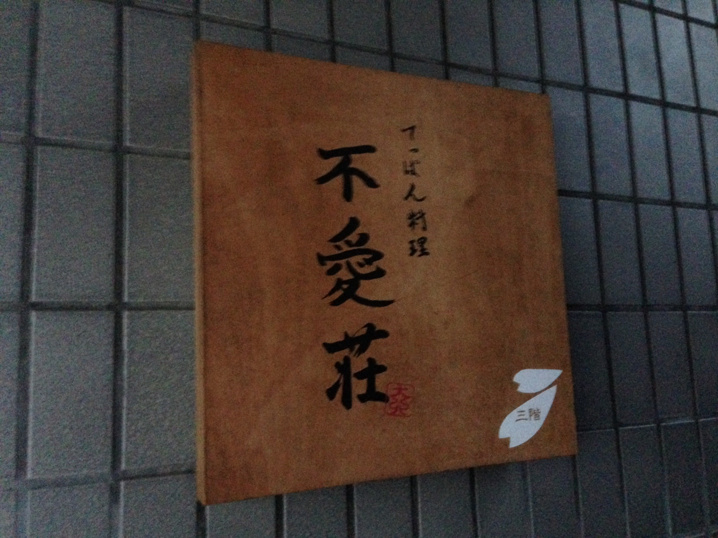 てっぱん料理
不愛荘
三階